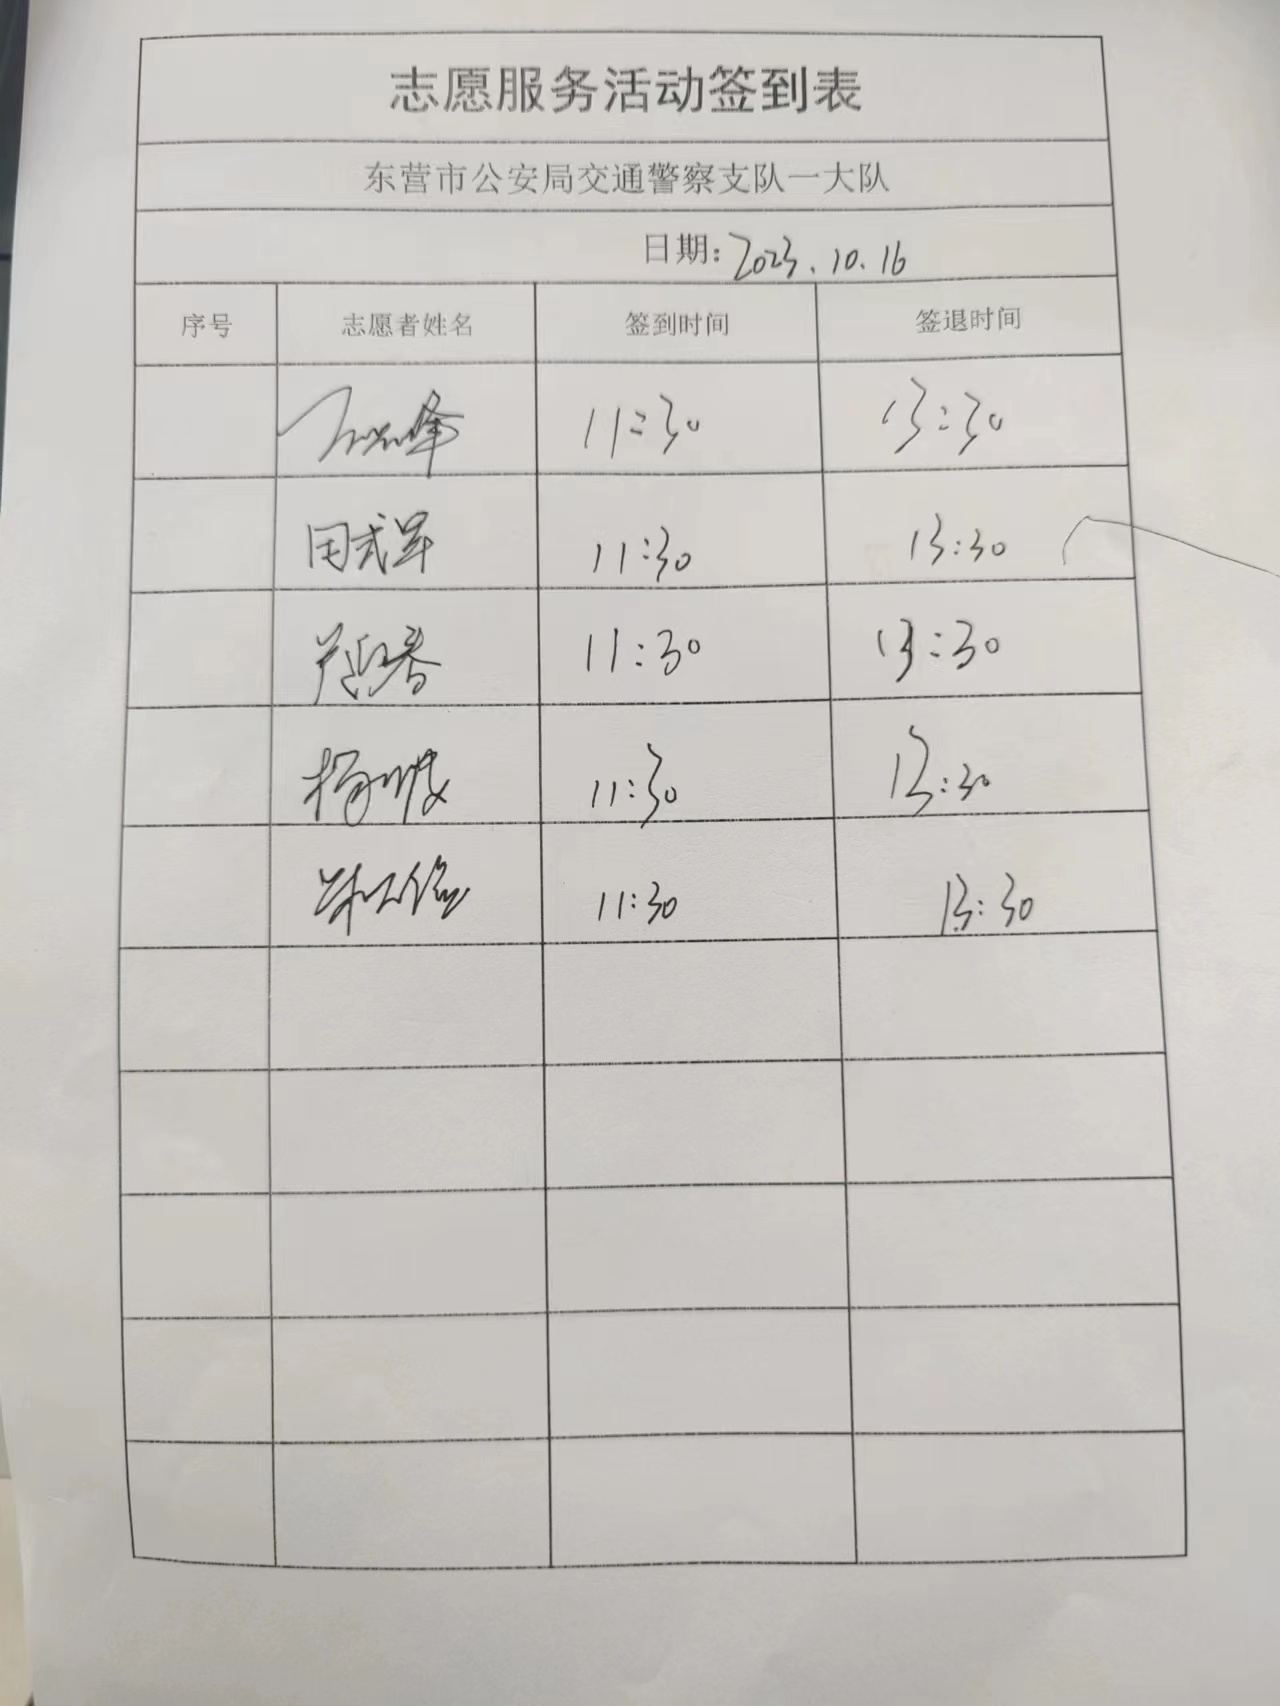 志愿服务活动签到表
东营市公安局交通警察支队一大队
日期: 2023.10.16
序号 志愿者姓名 签到时间 签退时间
11:30 13:30
田式军 11:30 13:30
11:30 13:30
11:30 13:30
11:30 13:30